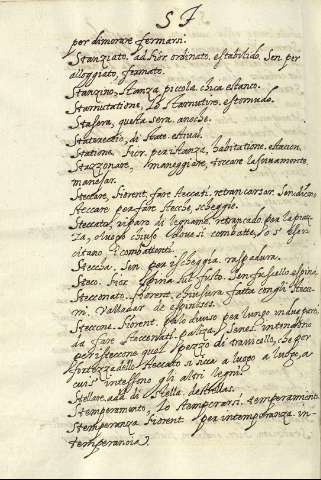 S T
per dimorare fermarsi.
Stanziato. ad. Fior. ordinato. establido. Sen. per
alloggiato, firmato.
Stanzino, Stanza piccola. chica estanco.
Starnutatione, Lo Starnutire. estornudo.
Stasera, questa sera. anoche.
Statereccio, di state. estival.
Statione, Fior. per stanza, habitatione. estacion.
Stazzonare, maneggiare, toccare lascivamente.
manosar.
Steccare, Fiorent. fare steccati. retrancar. Sen. dicono
steccare per fare stecche, schegge.
Steccato, riparo di legname. retrancado. per la piaz-
za, o luogo chiuso dove si combatte, o s'eser-
citano i combattenti.
Steccha. Sen. per scheggia. raspadura.
Steco. Fior. spina sul fusto. Sen. fastello espina.
Stecconato. Fiorent. chiusura fatta con gli stecco-
ni. Valladar de espinos.
Steccone. Fiorent. palo diviso per lungo in due parti,
da fare stecconati. palizo. Senesi intendono
per isteccone quel pezzo di travicello, che per
fortezza dello steccato si ficca a luogo a luogo, a
cui s'intessino gli altri legni.
Stellare. add. di Stella. de stellas.
Stemperamento, Lo stemperarsi. temperamento
Stemperanza. Fiorent. per intemperanza. in-
temperancia.